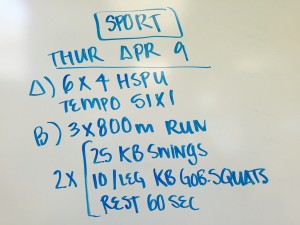 SPORT
THUR APR 9
A) 6 X 4 HSPU
TEMPO 51X1
B) 3 X 800m RUN
2X 25 KB SWINGS
10/LEG KB GOB. SQUATS
REST 60 SEC